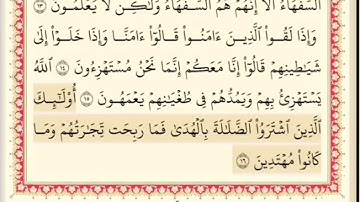 ٱلسُّفَهَآءُ أَلَآ إِنَّهُمْ هُمُ ٱلسُّفَهَآءُ وَلَٰكِن لَّا يَعْلَمُونَ ١٣
وَإِذَا لَقُوا۟ ٱلَّذِينَ ءَامَنُوا۟ قَالُوٓا۟ ءَامَنَّا وَإِذَا خَلَوْا۟ إِلَىٰ
شَيَٰطِينِهِمْ قَالُوٓا۟ إِنَّا مَعَكُمْ إِنَّمَا نَحْنُ مُسْتَهْزِءُونَ ١٤ ٱللَّهُ
يَسْتَهْزِئُ بِهِمْ وَيَمُدُّهُمْ فِى طُغْيَٰنِهِمْ يَعْمَهُونَ ١٥ أُو۟لَٰٓئِكَ
ٱلَّذِينَ ٱشْتَرَوُا۟ ٱلضَّلَٰلَةَ بِٱلْهُدَىٰ فَمَا رَبِحَت تِّجَٰرَتُهُمْ وَمَا
كَانُوا۟ مُهْتَدِينَ ١٦